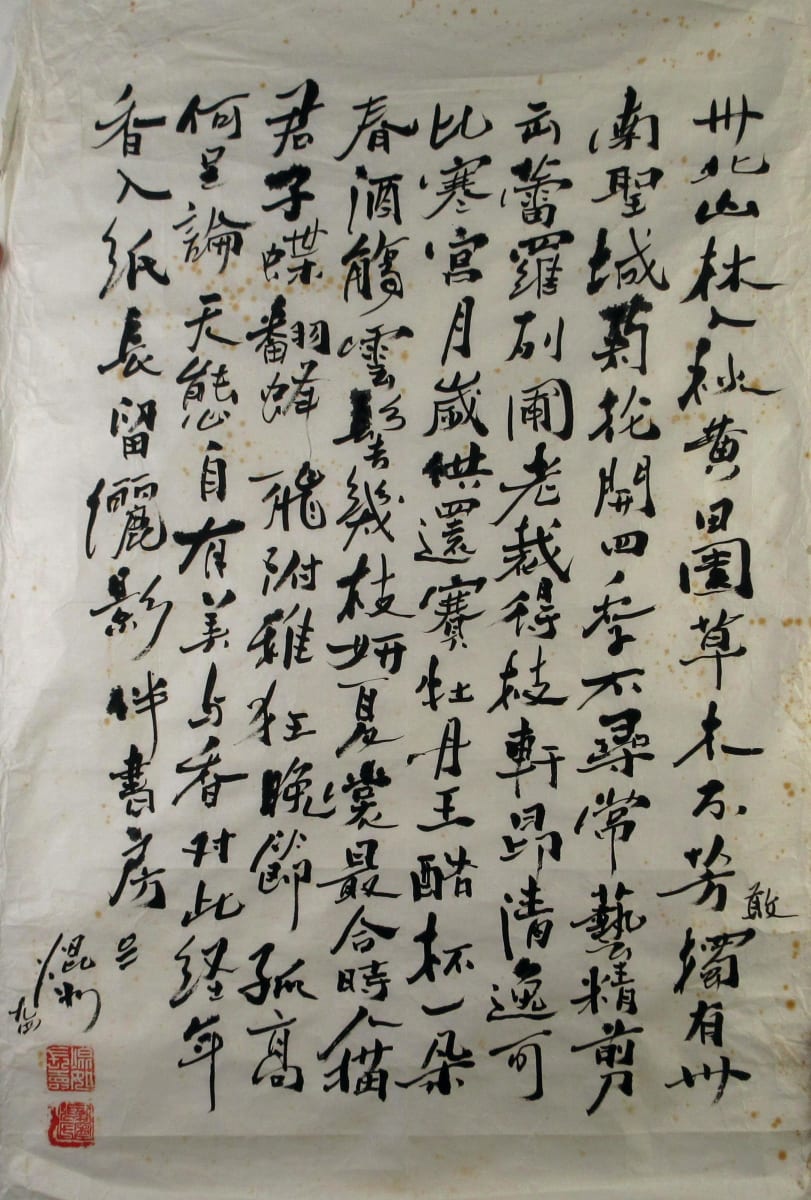 卅北山林入秋黄田園草木不芳獨有卅
敢
南聖城菊花開四季不尋常藝精剪
蕾羅列圃老栽得枝軒昂清逸可
比寒宮月歲供還賽牡丹王酷杯一朵
春酒觴雲髻幾枝妍夏裳最合時人描
君子蝶翻蜂附雞狂晚節孤高
何足論天態自有美与香对此経年
香入紙長留儷影伴書房